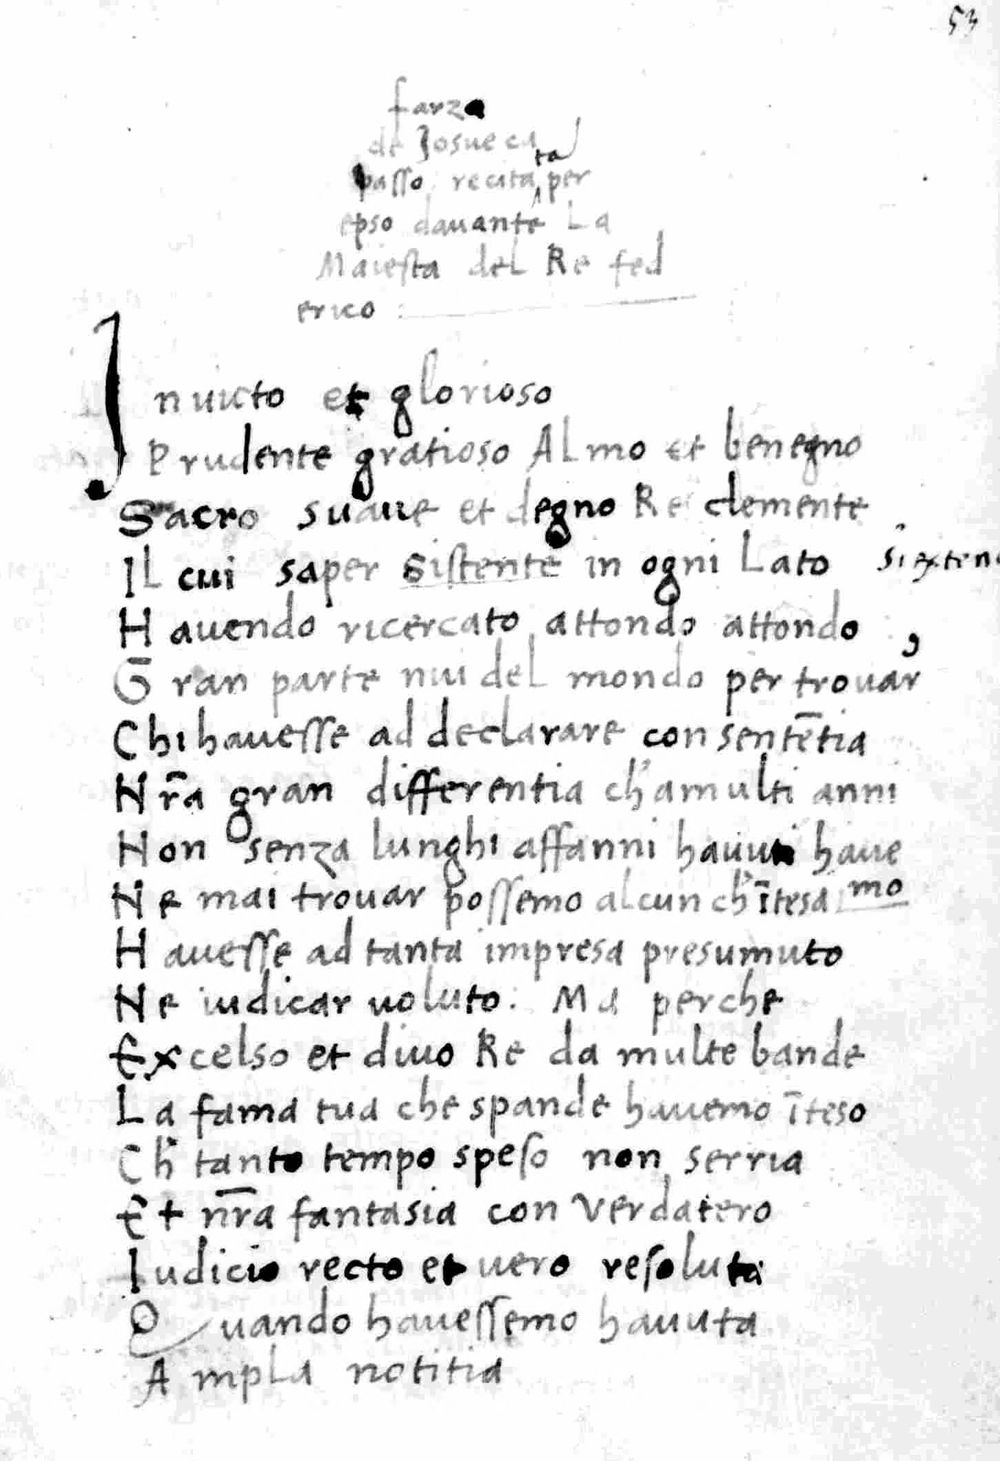 53
farza
de Josue ca
passo recitata per
epso davante La
Maiesta del Re fed
erico
Invicto et glorioso
Prudente gratioso Almo et benegno
Sacro suave et degno Re clemente
Il cui saper sistente in ogni Lato si exten
Havendo ricercato attondo attondo ,
Gran parte nui del mondo per trovar
Chi havesse ad declarare con sentētia
Nr̄a gran differentia ch' a multi anni
Non senza lunghi affanni havuti have
Ne mai trovar possemo alcun ch' ītesa mo
Havesse ad tanta impresa presumuto
Ne iudicar voluto. Ma perche
Excelso et divo Re da multe bande
La fama tua che spande havemo īteso
Ch' tanto tempo speso non serria
Et nr̄a fantasia con verdatero
Iudicio recto et vero resoluta
Quando havessemo havuta
Ampla notitia